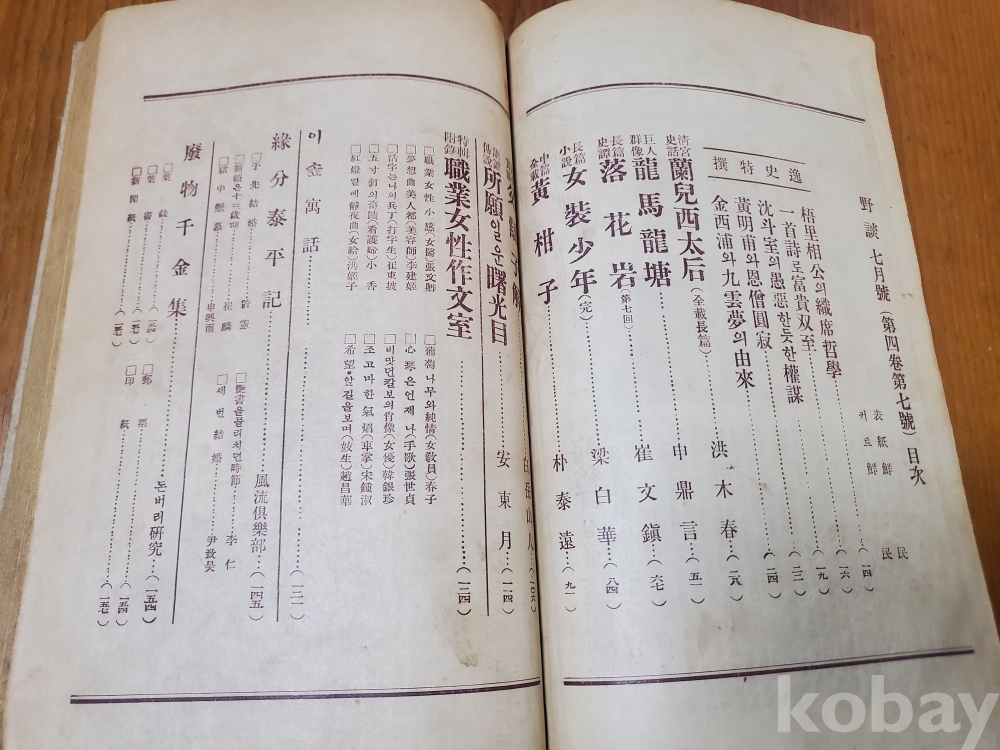 野談 七月號 (第四卷第七號) 目次
表紙 鮮民
커트 鮮民
逸史特撰
梧里相公의 織席哲學 (一四)
一首詩로 富貴双至 (一六)
沈斗室의 愚惡한듯한 權謀 (一九)
黃明甫와 恩僧圓寂 (二二)
金西浦와 九雲夢의 由來 (二四)
清宮史話 蘭兒西太后 (全載長篇) 洪木春 (二八)
巨人群像 龍馬龍塘 申鼎言 (五一)
長篇史譚 落花岩 (第七回) 崔文鎭 (六七)
長篇小說 女裝少年 (完) 梁白華 (八四)
中篇全載 黃柑子 朴泰遠 (九一)
山人 (一〇六)
傳說 所願일운曙光目 安東月 (一一四)
特輯附錄 職業女性作文室 (一二四)
□職業女性小感 (女醫) 張文卿
□夢想曲美人都 (美容師) 李建姬
□活字는나의兵丁 (打字生) 崔東珠
□五寸釘의奇蹟 (看護婦) 小香
□紅燈밑에靜夜曲 (女給) 洪姬子
□葡萄나무와純情 (女敎員) 春子
□心琴은언제나 (手歌) 張世貞
□비맛던칼보의肖像 (女優) 韓銀珍
□조고마한氣焰 (車掌) 宋鍾淑
□希望·안길을보며 (妓生) 趙昌華
이솝寓話 (一三一)
緣分泰平記 風流俱樂部 (一四五)
□子先結婚 許憲
□新婚은十三歲때 崔麟
□獄中戀慕 申興雨
□艶書을물리치던時節 李仁
□세번結婚 尹致昊
廢物千金集 돈버리硏究 (一五四)
□葉錢 (一五四)
□葉書 (一五七)
□新聞紙 (一五七)
□郵票 (一五四)
□印紙 (一五七)
kobay